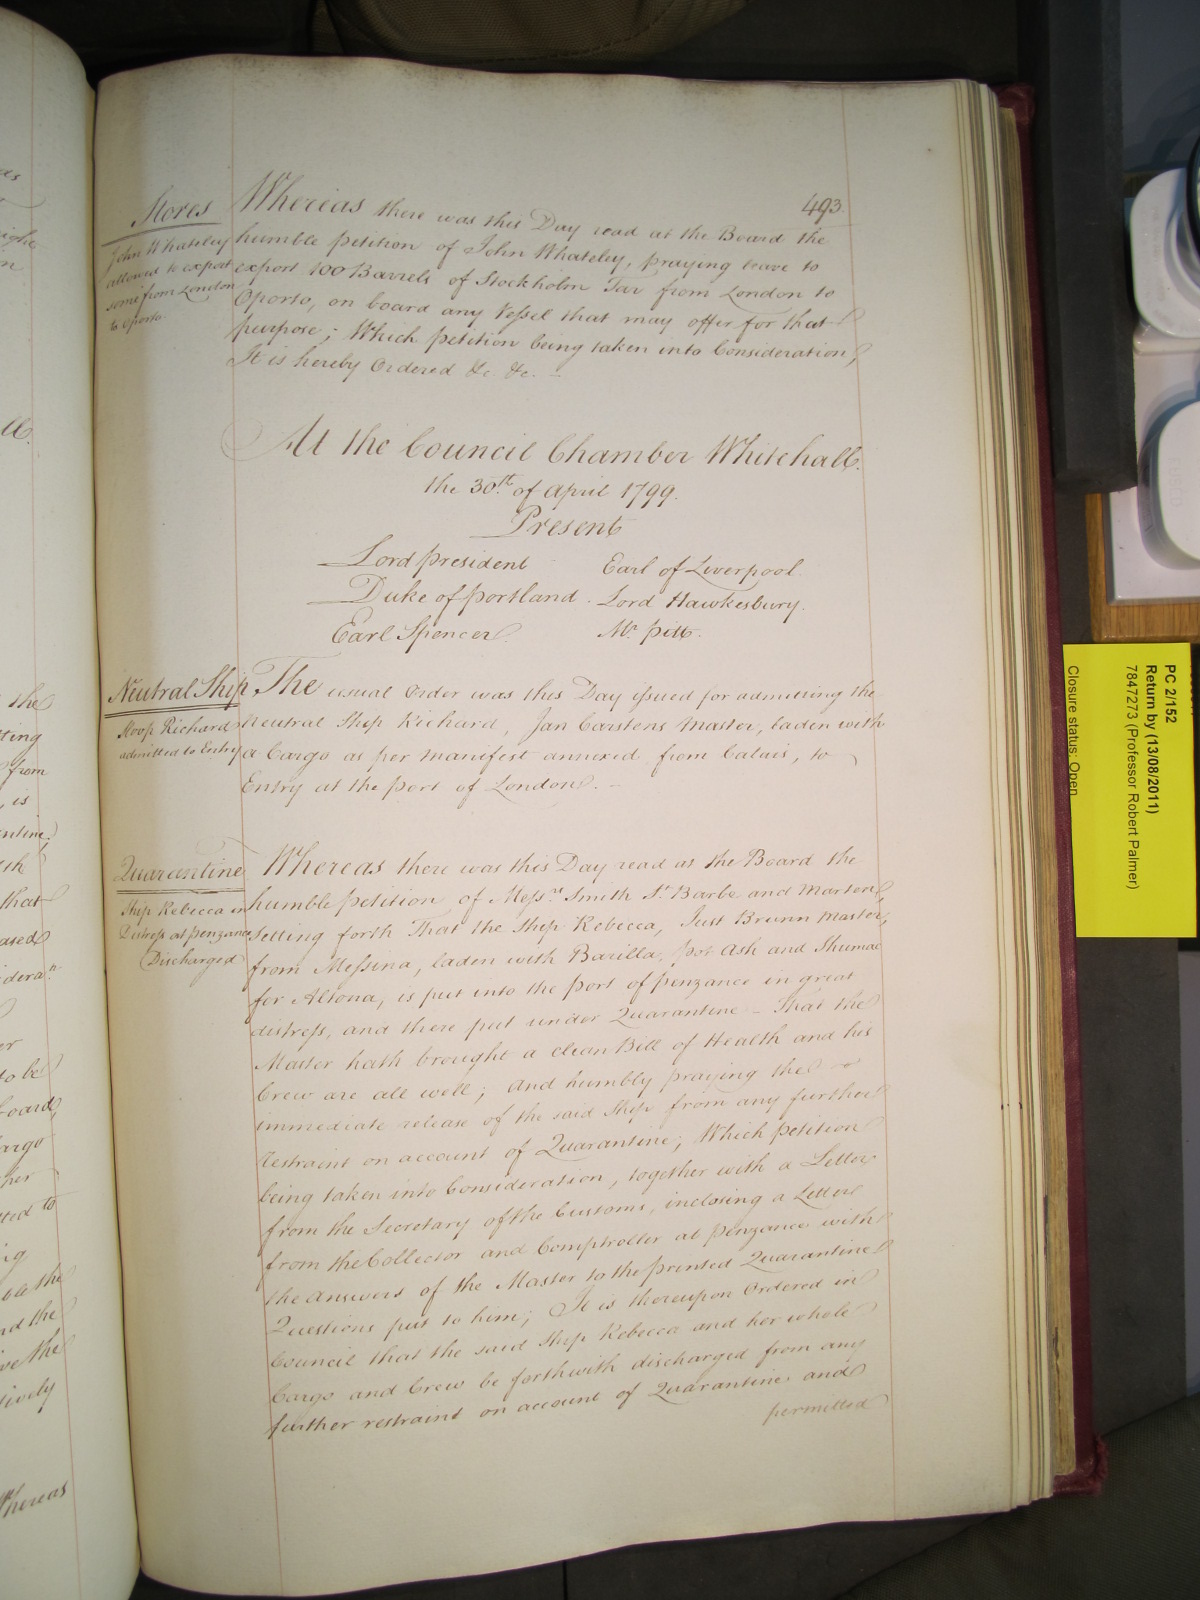 493.
Stores
John Whateley
allowed to export
some from London
to Oporto
Whereas there was this Day read at the Board the
humble petition of John Whateley, praying leave to
export 100 Barrels of Stockholm Tar from London to
Oporto, on board any Vessel that may offer for that
purpose; Which petition being taken into Consideration,
It is hereby Ordered &c. &c.
At the Council Chamber Whitehall.
the 30th. of April 1799.
Present
Lord president Earl of Liverpool.
Duke of portland. Lord Hawkesbury.
Earl Spencer. Mr. pitt.
Neutral Ship
Hoop Richard
admitted to Entry
The usual Order was this Day issued for admitting the
Neutral Ship Richard, Jan Carstens Master, laden with
a Cargo as per Manifest annexed from Calais, to
Entry at the port of London.
Quarantine
Ship Rebecca in
Distress at penzance
Discharged
Whereas there was this Day read at the Board the
humble petition of Messrs. Smith St. Barbe and Marten,
Setting forth That the Ship Rebecca, Just Brunn Master,
from Messina, laden with Barilla, pot Ash and Shumac
for Altona, is put into the port of penzance in great
distress, and there put under Quarantine - That the
Master hath brought a clean Bill of Health and his
Crew are all well; And humbly praying the
immediate release of the said Ship from any further
restraint on account of Quarantine; Which petition
being taken into Consideration, together with a Letter
from the Secretary of the Customs, inclosing a Letter
from the Collector and Comptroller at penzance with
the Answers of the Master to the printed Quarantine
Questions put to him; It is thereupon Ordered in
Council that the said Ship Rebecca and her whole
Cargo and Crew be forthwith discharged from any
further restraint on account of Quarantine and
permitted
Whereas
PC 2/152
Return by (13/08/2011)
7847273 (Professor Robert Palmer)
Closure status: Open